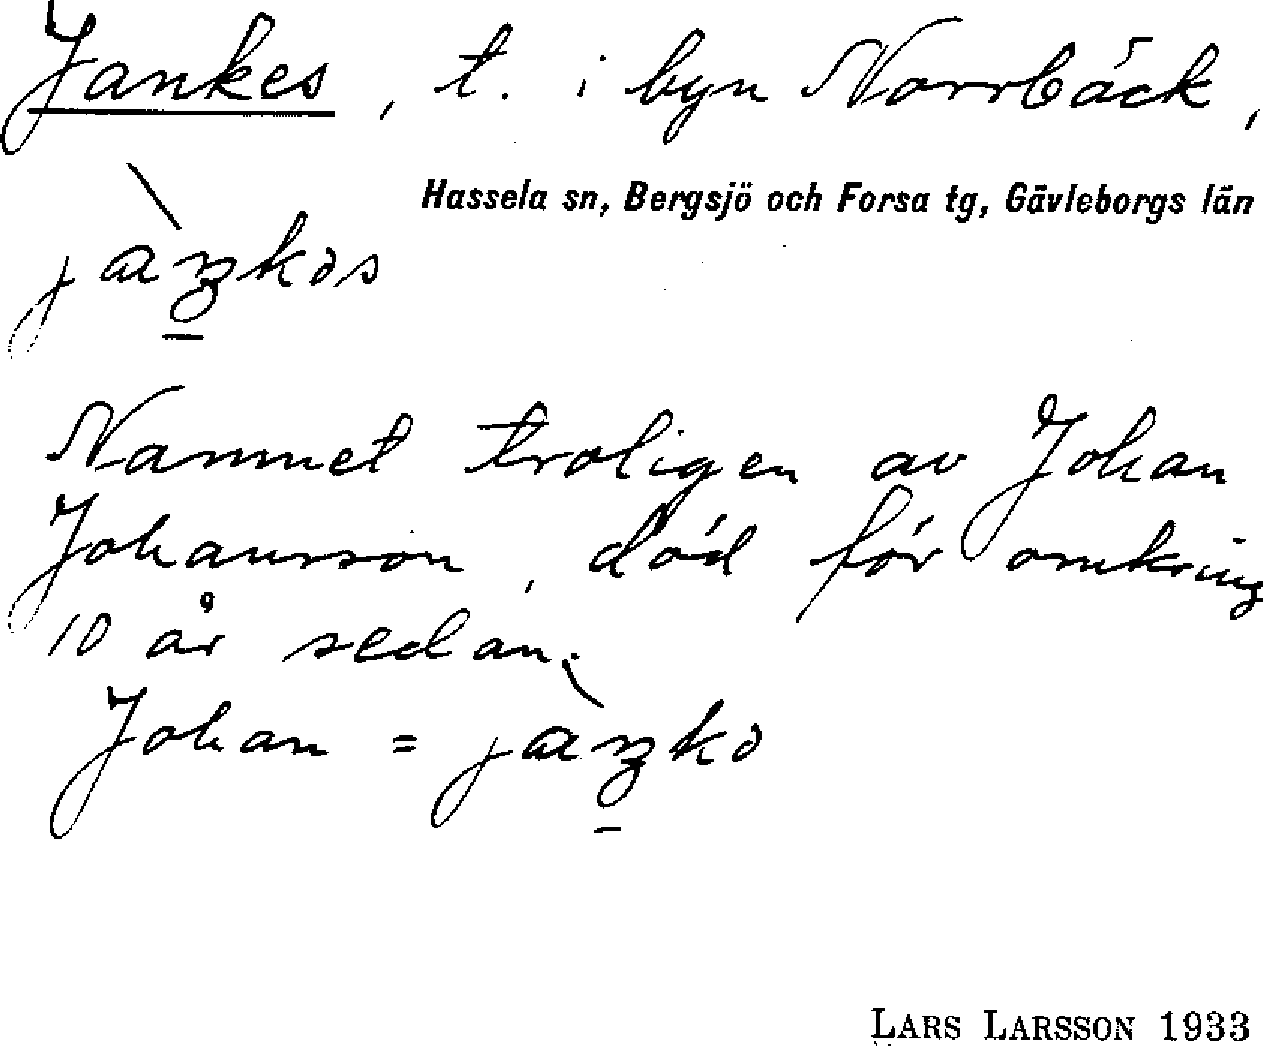 Jankes, t. i byn Norrbäck,
Hassela sn, Bergsjö och Forsa tg, Gävleborgs län
jàŋkəs
Namnet troligen av Johan
Johansson, död för omkring
10 år sedan.
Johan = jàŋkə
LARS LARSSON 1933